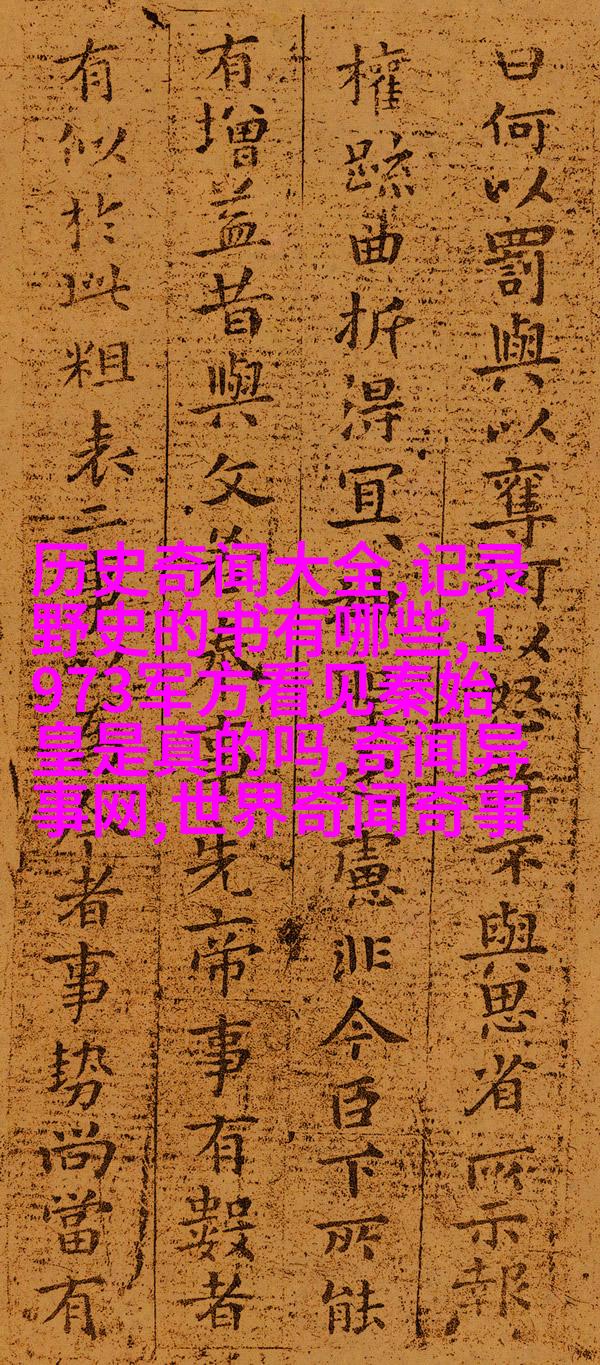 曰何以罰與以奪可以怒許不與思省所示報
權疏曲折得宜慮非今臣下所能
有增益昔與文若奉事先帝事有數者
有似於此粗表二者事勢尚當有
历史奇闻大全,记录
野史的书有哪些,1
973军方看见秦始
皇是真的吗,奇闻异
事网,世界奇闻奇事